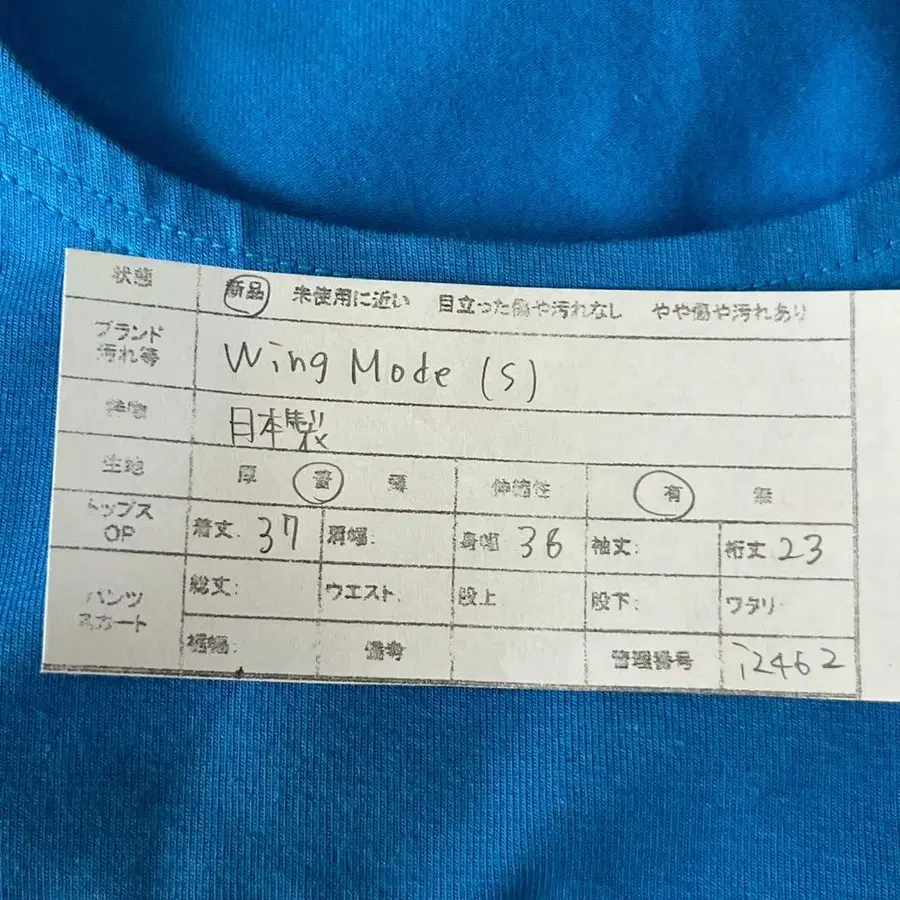 状態 新品 未使用に近い 目立った傷や汚れなし やや傷や汚れあり
ブランド
汚れ等
Wing Mode (S)
日本製
生地 厚 普 薄 伸縮性 有 無
トップス
OP
着丈: 37 肩幅: 身幅 38 袖丈: 裄丈 23
パンツ
スカート
総丈: ウエスト: 股上 股下: ワタリ
裾幅: 備考 管理番号 i2462